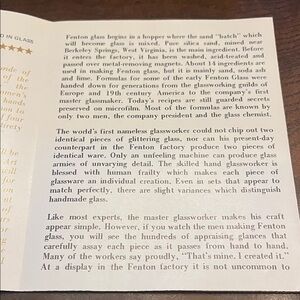 D IN GLASS
Fenton glass begins in a hopper where the sand "batch" which
will become glass is mixed. Pure silica sand, mined near
Berkeley Springs, West Virginia, is the main ingredient. Before
it enters the factory, it has been washed, acid-treated and
passed over metal-removing magnets. About 14 ingredients are
used in making Fenton glass, but it is mainly sand, soda ash
and lime. Formulas for some of the early Fenton Glass were
handed down for generations from the glassworking guilds of
Europe and 19th century America to the company's first
master glassmaker. Today's recipes are still guarded secrets
preserved on microfilm. Most of the formulas are known by
only two men, the company president and the glass chemist.
The world's first nameless glassworker could not chip out two
identical pieces of glittering glass, nor can his present-day
counterpart in the Fenton factory produce two pieces of
identical ware. Only an unfeeling machine can produce glass
armies of unvarying detail. The skilled hand glassworker is
blessed with human frailty which makes each piece of
glassware an individual creation. Even in sets that appear to
match perfectly, there are slight variances which distinguish
handmade glass.
Like most experts, the master glassworker makes his craft
appear simple. However, if you watch the men making Fenton
glass, you will see the hundreds of appraising glances that
carefully assay each piece as it passes from hand to hand.
Many of the workers say proudly, "That's mine. I created it."
At a display in the Fenton factory it is not uncommon to